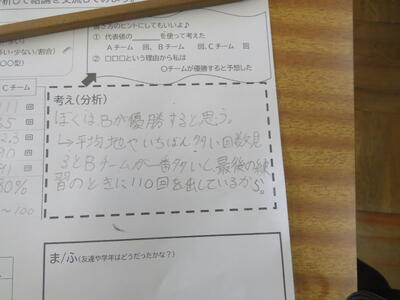 析して結論を交流しよう。
考え方のヒントにしてもいいよ♪
① 代表値の______を使って考えた
Aチーム 回、Bチーム 回、Cチーム 回
② □□□という理由から私は
○チームが優勝すると予想した
少ない/割合)
Cチーム
回
回
回
回
回
80%
~100
考え(分析)
ぼくはBが優勝すると思う。
→平均地やいちばん多い回数を見
るとBチームが一番多いし、最後の練
習のときに110回を出しているから。
ま/ふ(友達や学年はどうだったかな?)